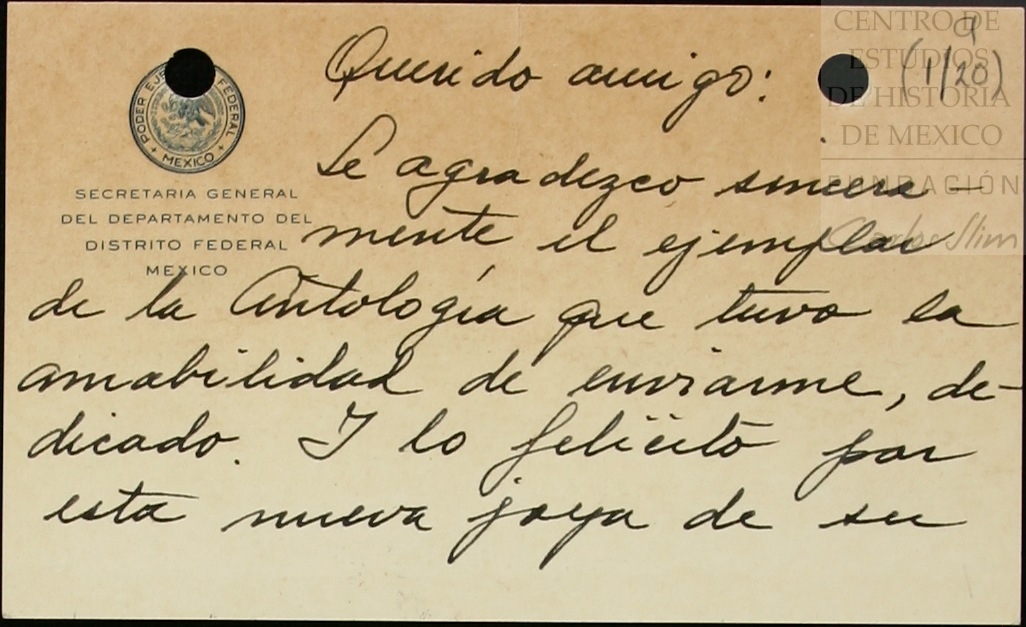 CENTRO DE
ESTUDIOS
DE HISTORIA
DE MEXICO
FUNDACIÓN
Carlos Slim
9
(1/20)
PODER EJECUTIVO FEDERAL
MEXICO
SECRETARIA GENERAL
DEL DEPARTAMENTO DEL
DISTRITO FEDERAL
MEXICO
Querido amigo:
Le agradezco sincera-
mente el ejemplar
de la Antología que tuvo la
amabilidad de enviarme, de-
dicado. Y lo felicito por
esta nueva joya de su